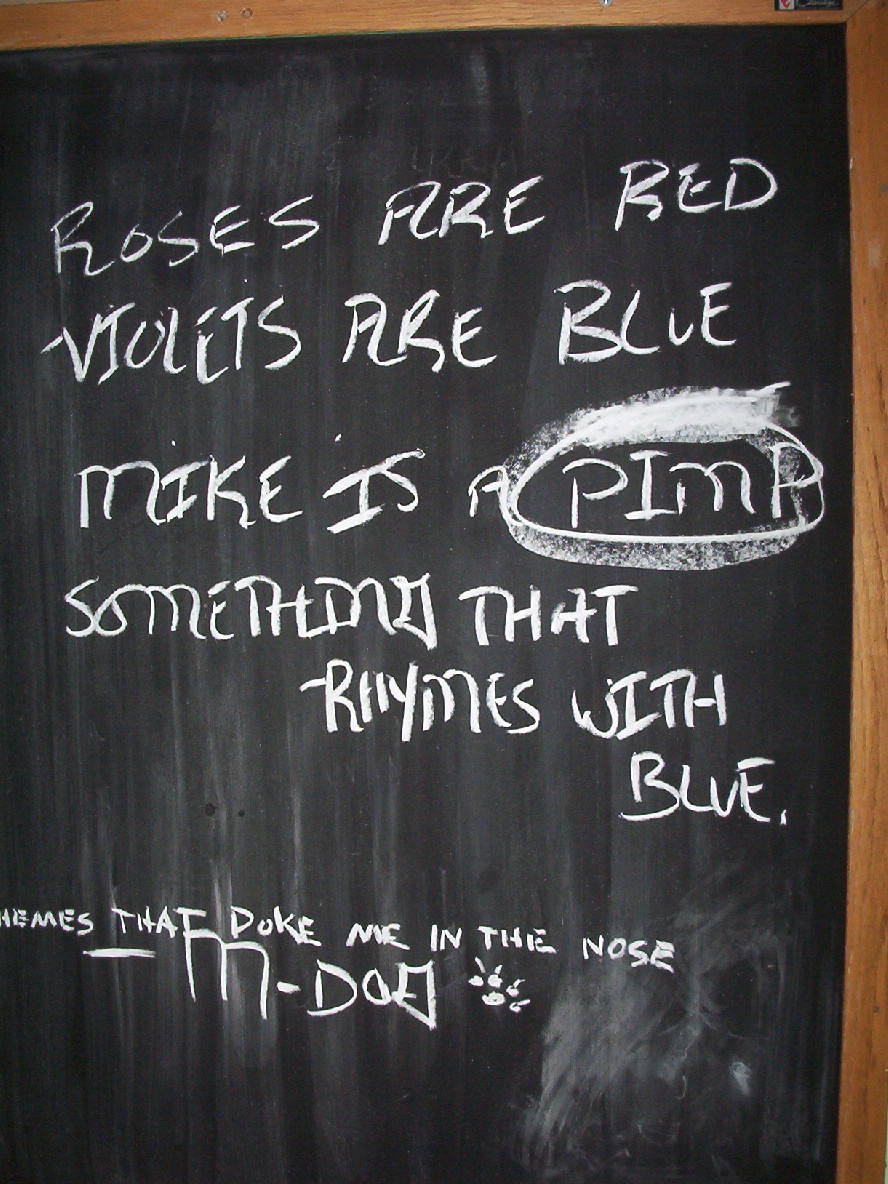 ROSES ARE RED
VIOLETS ARE BLUE
MIKE IS A PIMP
SOMETHING THAT
RHYMES WITH
BLUE.
HEMES THAT DOKE ME IN THE NOSE
M-DOG